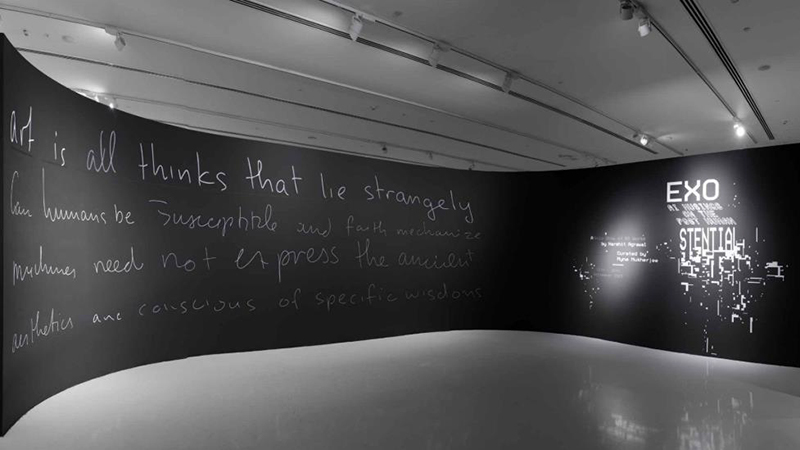 art is all thinks that lie strangely
Can humans be Susceptible and faith mechanize
machines need not express the ancient
aesthetics are conscious of specific wisdoms
EXO
AI MUSINGS
ON THE
POST HUMAN
STENTIAL
by Harshit Agrawal
Curated by
Myna Mukherjee